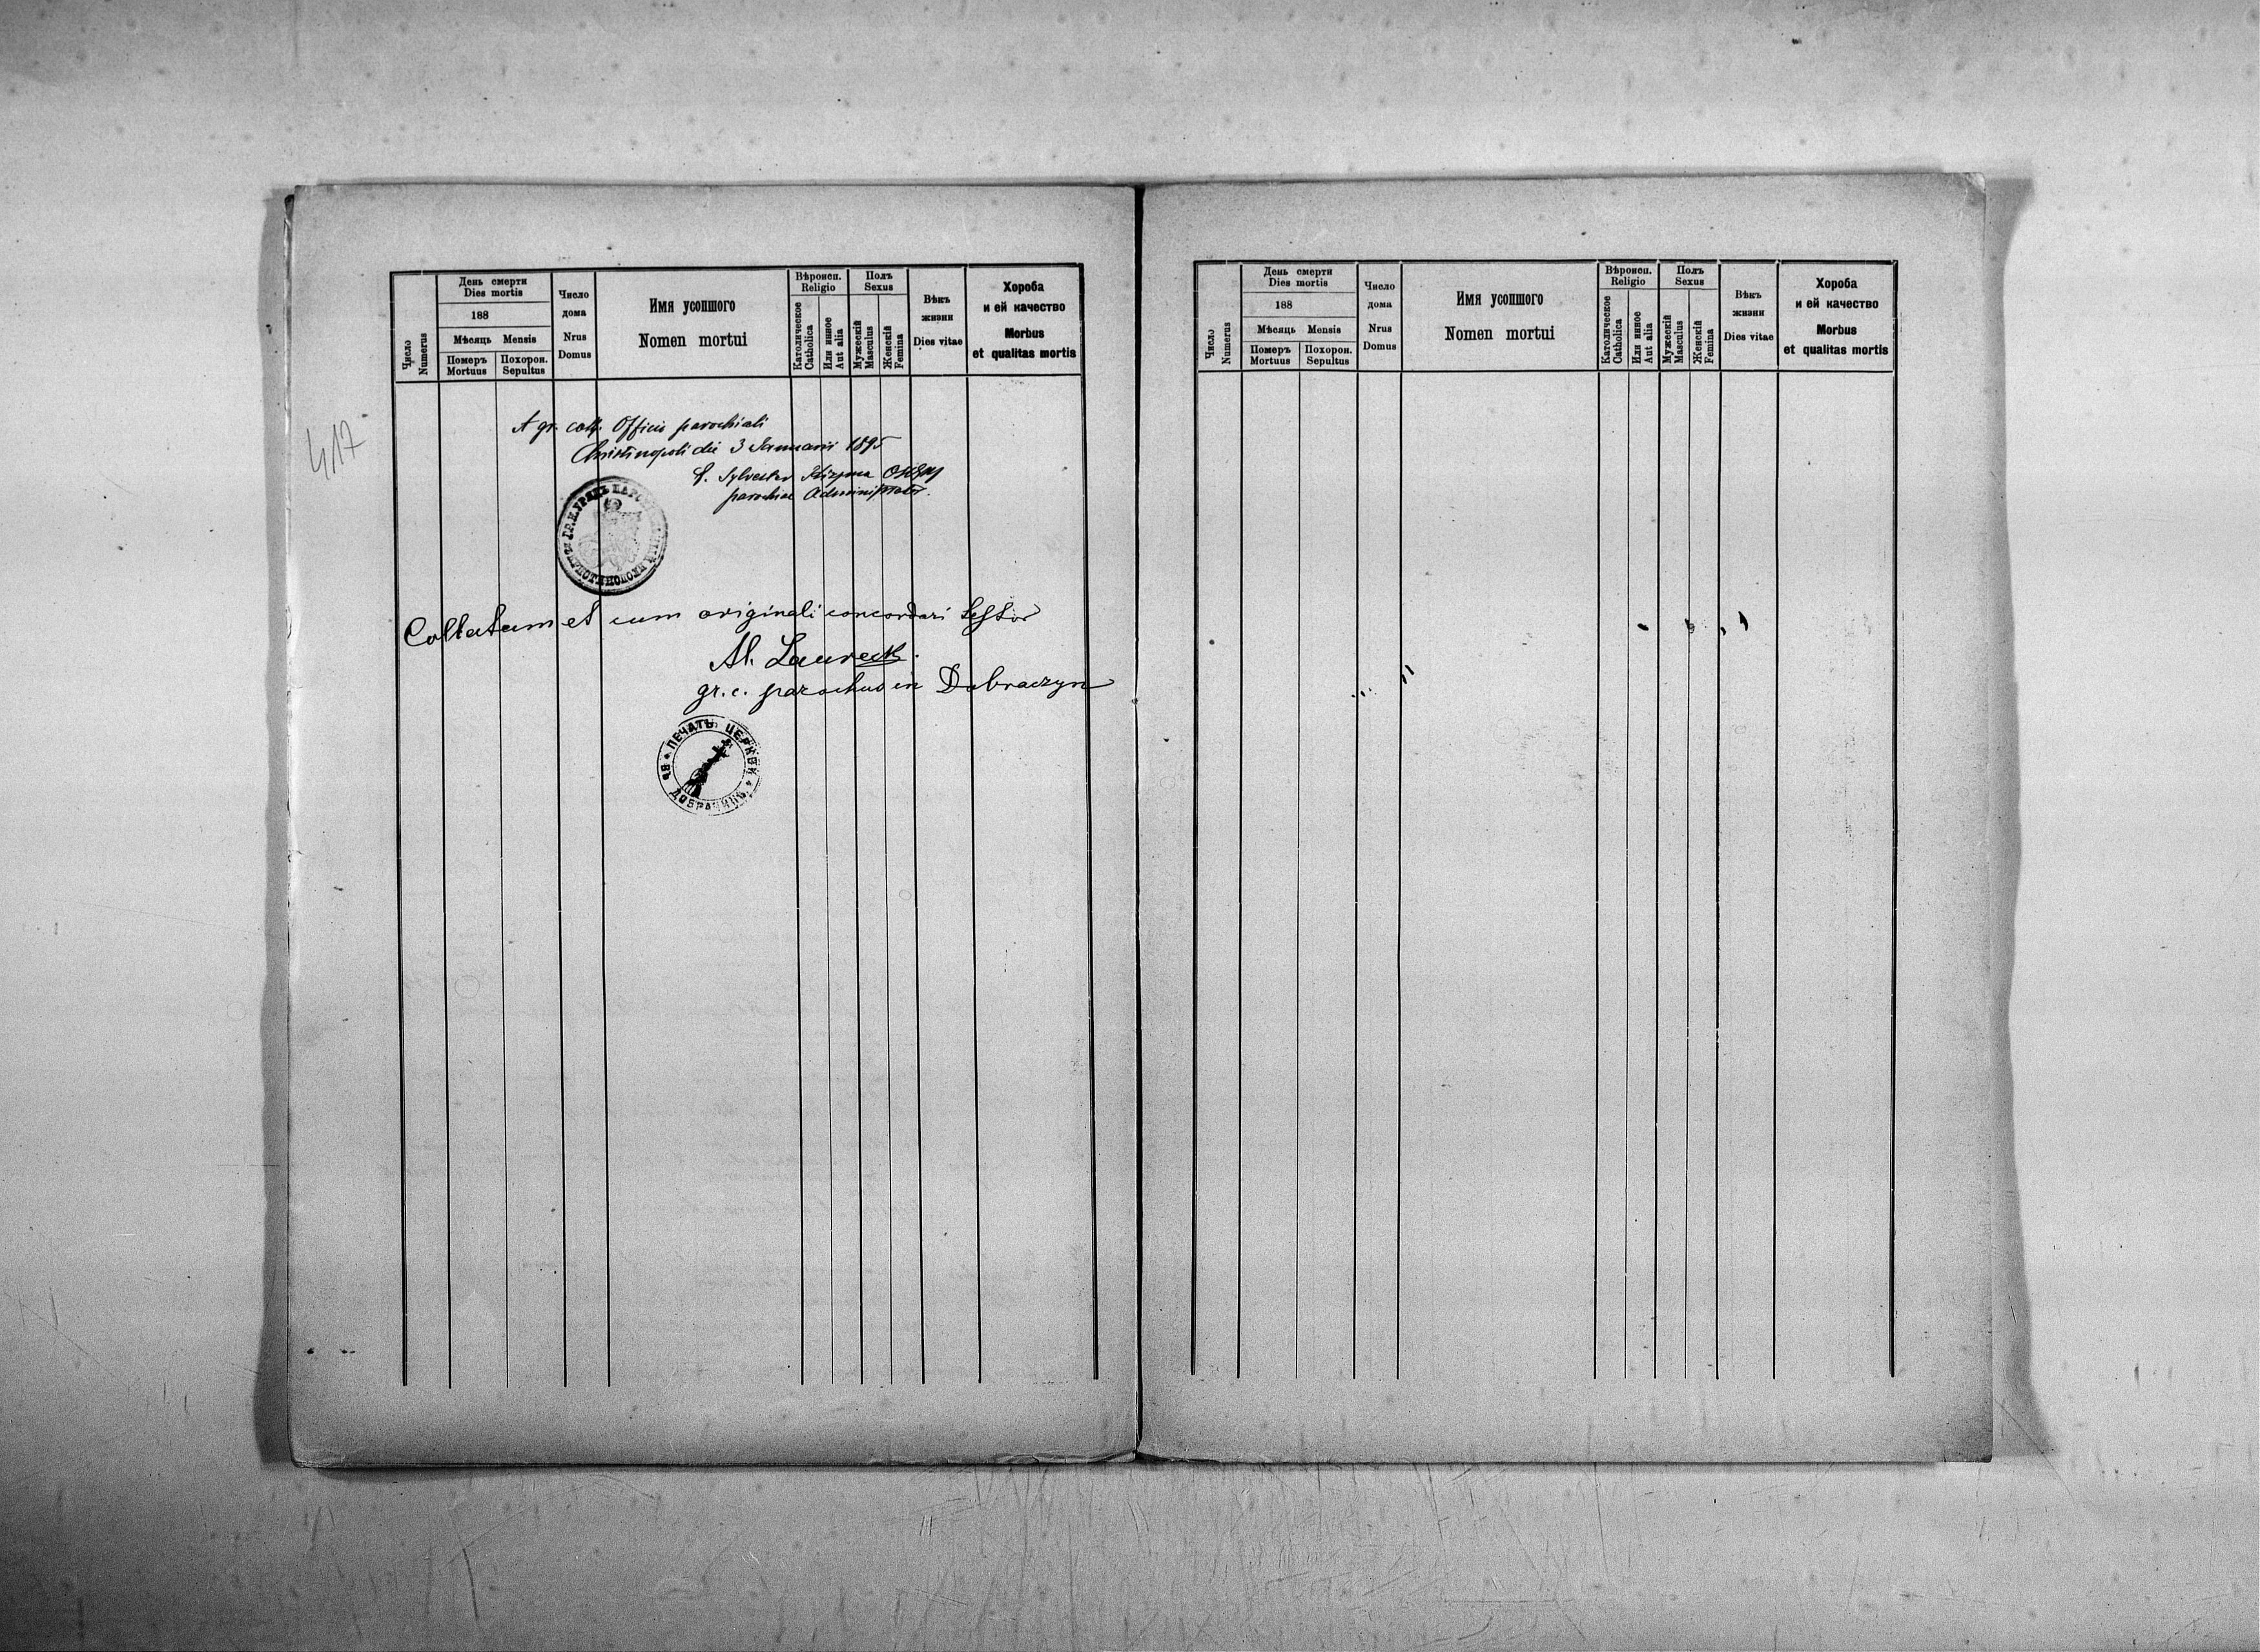 417
Число
Numerus
День смерти
Dies mortis
188
Мѣсяць Mensis
Померъ
Mortuus
Похорон.
Sepultus
Число
дома
Nrus
Domus
Имя усопшого
Nomen mortui
Вѣроисп.
Religio
Католическое
Catholica
Или инное
Aut alia
Полъ
Sexus
Мужескій
Masculus
Женскій
Femina
Вѣкъ
жизни
Dies vitae
Хороба
и ей качество
Morbus
et qualitas mortis
A gr. cath. Officio parochiali
Christinopoli die 3 Januarii 1895
P. Sylvester OSBM
parochiae Administrator.
Collatum et cum originali concordari testor
Al. Laureck.
gr. c. parochus in Dobraczyn
ПЕЧАТЬ ЦЕРКВИ
ВЪ ДОБРАЧИНѢ
Число
Numerus
День смерти
Dies mortis
188
Мѣсяць Mensis
Померъ
Mortuus
Похорон.
Sepultus
Число
дома
Nrus
Domus
Имя усопшого
Nomen mortui
Вѣроисп.
Religio
Католическое
Catholica
Или инное
Aut alia
Полъ
Sexus
Мужескій
Masculus
Женскій
Femina
Вѣкъ
жизни
Dies vitae
Хороба
и ей качество
Morbus
et qualitas mortis